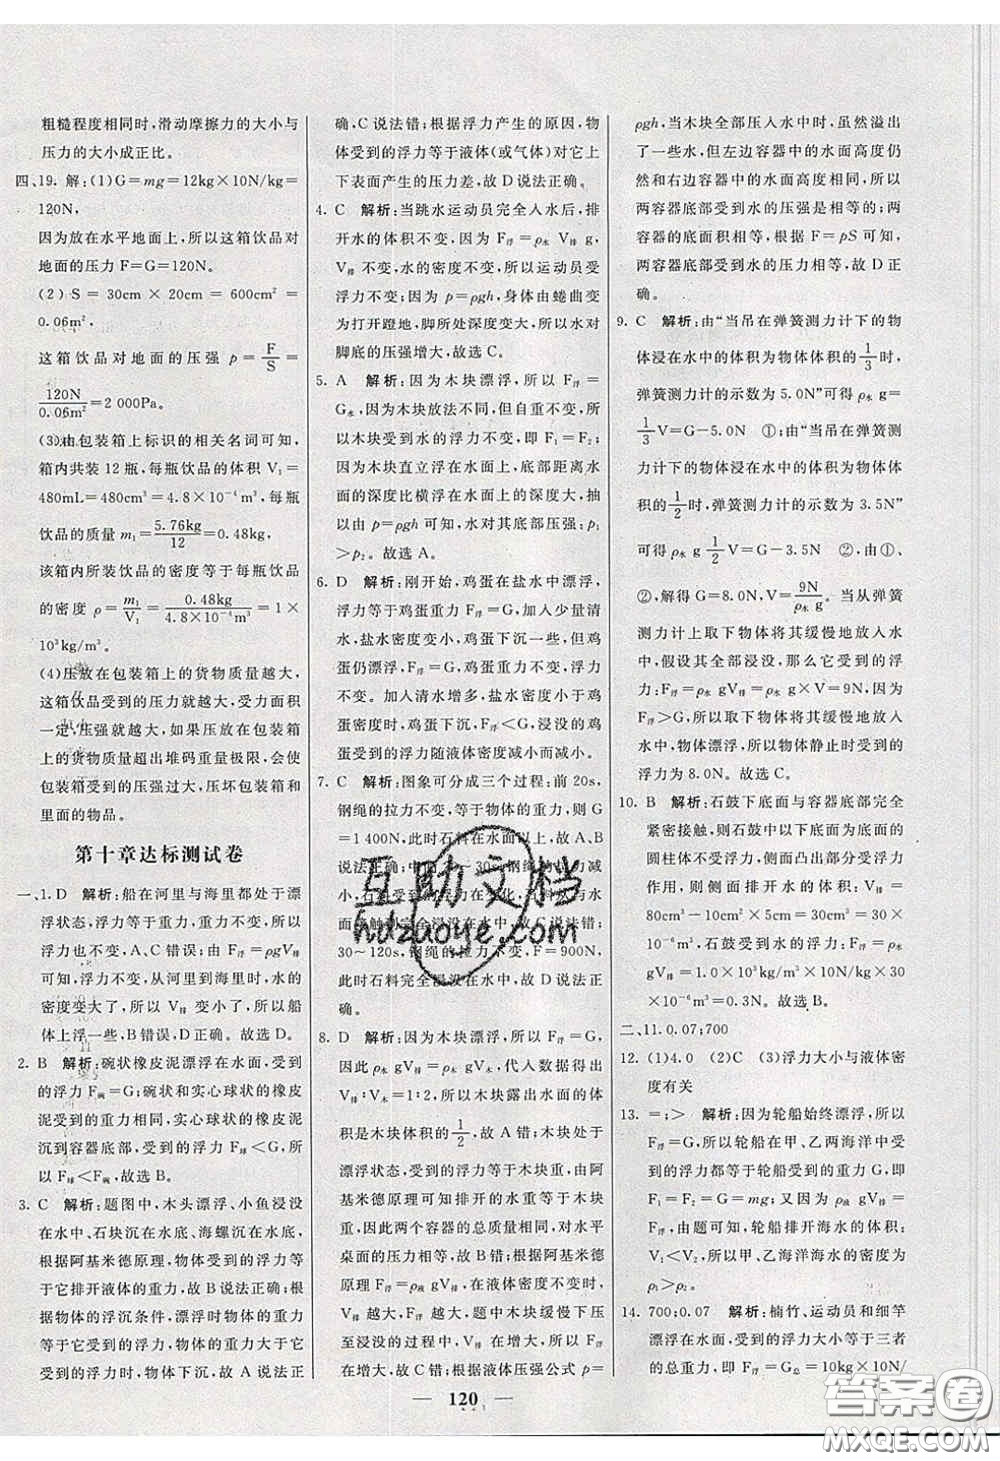 粗糙程度相同时,滑动摩擦力的大小与
压力的大小成正比。
四、19. 解:(1)G=mg=12kg×10N/kg=
120N
因为放在水平地面上,所以这箱饮品对
地面的压力 F=G=120N。
(2) S = 30cm × 20cm = 600cm² =
0.06m²,
这箱饮品对地面的压强 p=F/S=
120N/0.06m²=2 000Pa。
(3)由包装箱上标识的相关名词可知,
箱内共装 12 瓶,每瓶饮品的体积 V₁=
480mL=480cm³=4.8×10⁻⁴m³,每瓶
饮品的质量 m₁=5.76kg/12=0.48kg,
该箱内所装饮品的密度等于每瓶饮品
的密度 ρ=m₁/V₁=0.48kg/4.8×10⁻⁴m³=1×
10³kg/m³。
(4)压放在包装箱上的货物质量越大,
这箱饮品受到的压力就越大,受力面积
一定,压强就越大,如果压放在包装箱
上的货物质量超出堆码重量极限,会使
包装箱受到的压强过大,压坏包装箱和
里面的物品。
第十章达标测试卷
一、1. D 解析:船在河里与海里都处于漂
浮状态,浮力等于重力,重力不变,所以
浮力也不变,A、C错误;由 F浮=ρgV排
可知,浮力不变,从河里到海里时,水的
密度变大了,所以 V排 变小了,所以船
体上浮一些,B错误,D正确。故选D。
2. B 解析:碗状橡皮泥漂浮在水面,受到
的浮力 F碗=G;碗状和实心球状的橡皮
泥受到的重力相同,实心球状的橡皮泥
沉到容器底部,受到的浮力 F球<G,所
以 F球<F碗,故选 B。
3. C 解析:题图中,木头漂浮、小鱼浸没
在水中、石块沉在水底、海螺沉在水底,
根据阿基米德原理,物体受到的浮力等
于它排开液体的重力,故 B 说法正确;
根据物体的浮沉条件,漂浮时物体的重力
等于它受到的浮力,物体的重力大于它
受到的浮力时,物体下沉,故 A 说法正
确,C说法错;根据浮力产生的原因,物
体受到的浮力等于液体(或气体)对它
上下表面产生的压力差,故 D 说法正确。
4. C 解析:当跳水运动员完全入水后,排
开水的体积不变,因为 F浮=ρ水 V排 g,
V排 不变,水的密度不变,所以运动员受
浮力不变;因为 p=ρgh,身体由蜷曲变
为打开蹬地,脚所处深度变大,所以水对
脚底的压强增大,故选 C。
5. A 解析:因为木块漂浮,所以 F浮=
G木,因为木块放法不同,但自重不变,
所以木块受到水的浮力不变,即 F₁=F₂;
因为木块直立浮在水面上,底部距离水
面的深度比横浮在水面上的深度大,
以由 p=ρgh 可知,水对其底部压强:p₁
>p₂。故选 A。
6. D 解析:刚开始,鸡蛋在盐水中漂浮,
浮力等于鸡蛋重力 F浮=G,加入少量清
水,盐水密度变小,鸡蛋下沉一些,但鸡
蛋仍漂浮,浮力还等于重力,浮力不变。
加入清水增多,盐水密度小于鸡蛋密
度时,鸡蛋下沉,F浮<G,浸没的鸡蛋
受到的浮力随液体密度减小而减小。
7. C 解析:图象可分成三个过程:前 20s,
钢绳的拉力不变,等于物体的重力,所以 G
=1 400N,此时石料在水面以上,故 A、B
说法正确;20~30s,钢绳的拉力减
小,
30~120s,钢绳的拉力不变,F=900N,
此时石料完全浸没在水中,故 D说法正
确。
8. D 解析:因为木块漂浮,所以 F浮=G,
所以 ρ水 gV排=ρ木 gV木,代入数据得出
V排:V木=1:2,所以木块露出水面的体
积是木块体积的 1/2,故 A 错;木块处于
漂浮状态,受到的浮力等于木块重,由阿
基米德原理可知,排开的水重等于木块
重,因此两个容器的总质量相同,对水平
桌面的压力相等,故 B错;由阿基米德
原理 F浮=ρ液 gV排,在液体密度不变时,
V排 越大,F浮 越大,题中木块缓慢下压
至浸没的过程中,V排 在增大,所以 F浮
在增大,故C错;根据液体压强公式 p=
ρgh,当木块全部压入水中时,虽然溢出
了一些水,但左边容器中的水面高度仍
然和右边容器中的水面高度相等,所以
两容器底部受到水的压强是相等的;两
容器的底面积相等,根据 F=pS 可知,
两容器底部受到水的压力相等,故 D正
确。
9. C 解析:由“当吊在弹簧测力计下的物
体浸在水中的体积为物体体积的 1/3 时,
弹簧测力计的示数为 5.0N”可得 ρ水 g=
1/3 V=G-5.0N ①;由“当吊在弹簧测
力计下的物体浸在水中的体积为物体体
积的 1/2 时,弹簧测力计的示数为 3.5N”
可得 ρ水 g 1/2 V=G-3.5N ②,由①、
②,解得 G=8.0N,V=9N/ρ水 g。当从弹簧
测力计上取下物体将其缓慢地放入水
中,假设其全部浸没,那么它受到的浮
力:F浮=ρ水 gV排=ρ水 gV=9N,因为
F浮>G,所以取下物体将其缓慢地放入
水中,物体漂浮,所以物体静止时受到的
浮力为 8.0N。故选 C。
10. B 解析:石鼓下底面与容器底部完全
紧密接触,则石鼓中间与下底面相同的
圆柱体不受浮力,两侧凸出部分受浮力
作用,则侧面排开水的体积:V=
80cm³-10cm²×5cm=30cm³=30×
10⁻⁶m³,石鼓受到水的浮力:F浮=ρ水
gV排=1.0×10³kg/m³×10N/kg×30×
10⁻⁶m³=0.3N。故选 B。
二、11. 0.07;700
12. (1)4.0 (2)C (3)浮力大小与液体密
度有关
13. =;> 解析:因为轮船始终漂浮,浮力
F浮=G,所以轮船在甲、乙两海洋中受
到的浮力都等于轮船受到的重力 G,即
F₁=F₂=G=mg;又因为 F浮=ρ液
gV排,由题可知,轮船排开海水的体积:
V₁<V₂,所以甲、乙海洋海水的密度为
ρ₁>ρ₂。
14. 700;0.07 解析:楠竹、运动员和细竿
漂浮在水面,受到的浮力大小等于三者
的总重力,即 F浮=G总=10kg×10N/
120
互助文档
huzuoye.com
答案圈
MXQE.COM